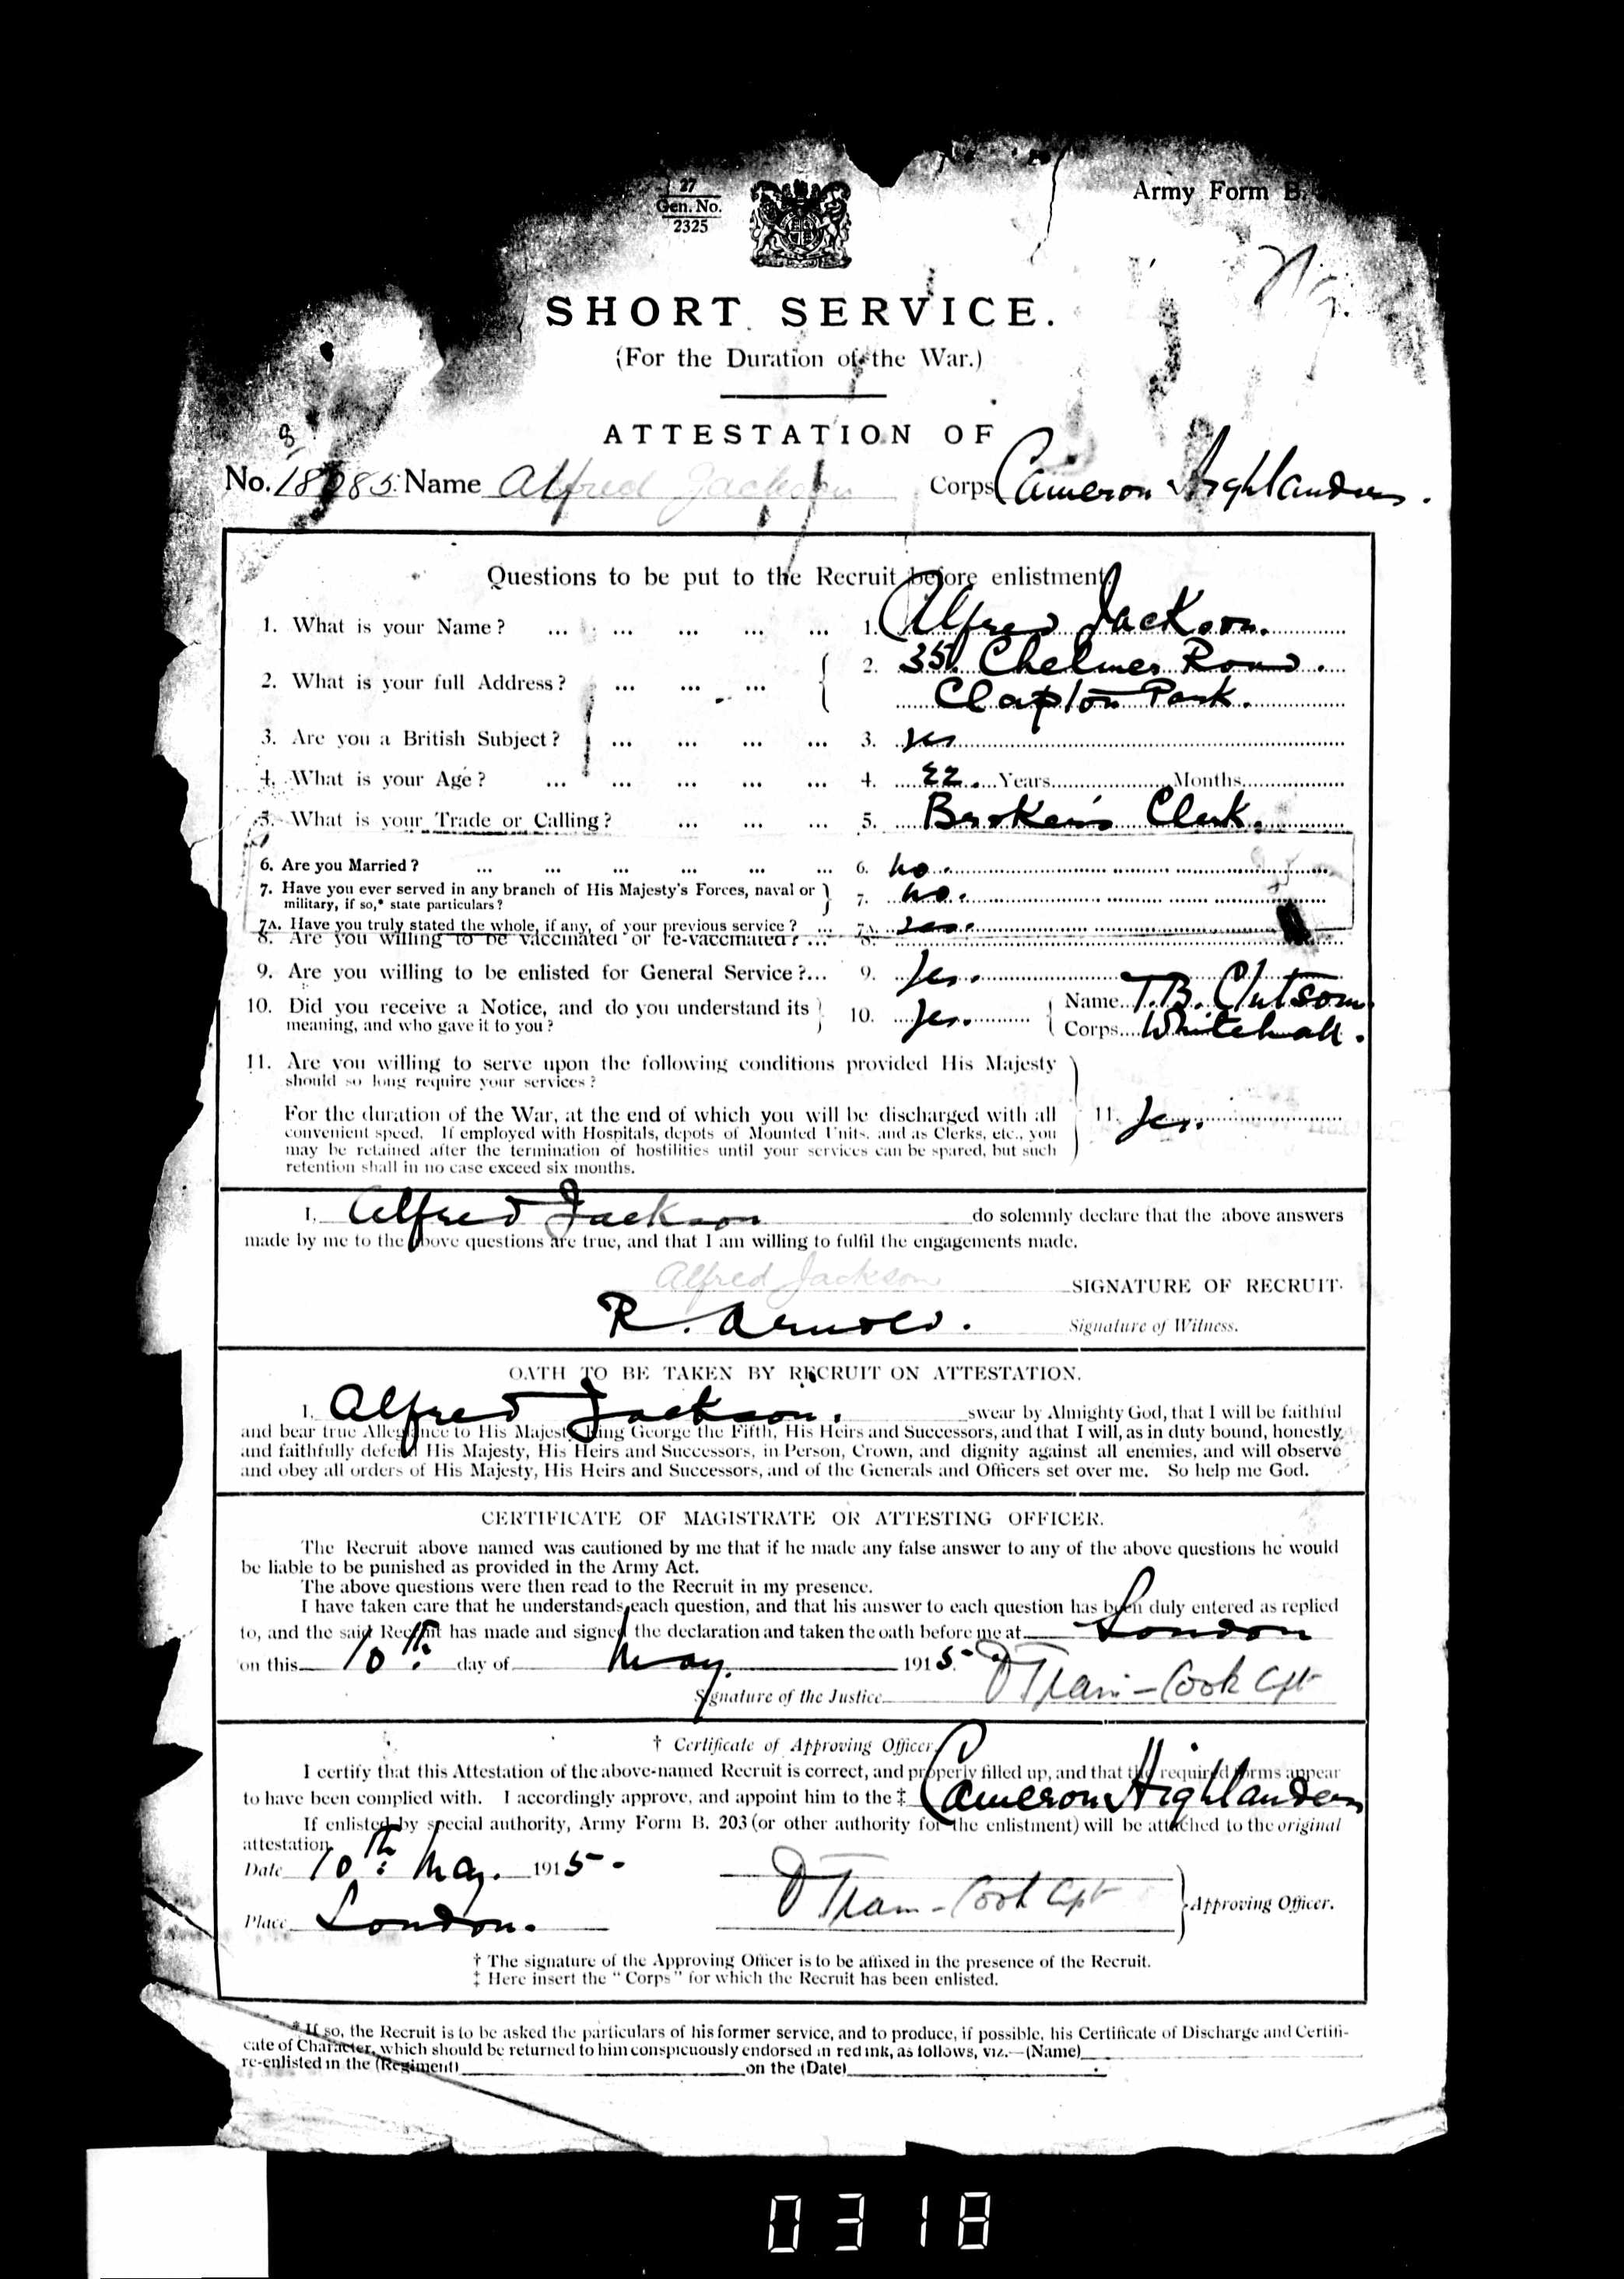 27
Gen. No.
2325
Army Form B.
SHORT SERVICE.
(For the Duration of the War.)
ATTESTATION OF
No. Name Alfred Jackson Corps Cameron Highlanders.
Questions to be put to the Recruit before enlistment.
1. What is your Name? ... ... ... ... ... 1. Alfred Jackson.
2. What is your full Address? ... ... ... 2. 35 Chelmer Road.
Clapton Park.
3. Are you a British Subject? ... ... ... ... 3. Yes
4. What is your Age? ... ... ... ... ... 4. 22. Years Months
5. What is your Trade or Calling? ... ... ... 5. Broker's Clerk.
6. Are you Married? ... ... ... ... ... ... 6. No.
7. Have you ever served in any branch of His Majesty's Forces, naval or
military, if so,* state particulars? 7. No.
7A. Have you truly stated the whole, if any, of your previous service? ... 7A. Yes.
8. Are you willing to be vaccinated or re-vaccinated? ... 8.
9. Are you willing to be enlisted for General Service?... 9. Yes.
10. Did you receive a Notice, and do you understand its
meaning, and who gave it to you? 10. Yes. Name T.B. Clutsom
Corps Whitehall.
11. Are you willing to serve upon the following conditions provided His Majesty
should so long require your services?
For the duration of the War, at the end of which you will be discharged with all
convenient speed. If employed with Hospitals, depots of Mounted Units, and as Clerks, etc., you
may be retained after the termination of hostilities until your services can be spared, but such
retention shall in no case exceed six months.
11. Yes.
I, Alfred Jackson do solemnly declare that the above answers
made by me to the above questions are true, and that I am willing to fulfil the engagements made.
Alfred Jackson SIGNATURE OF RECRUIT.
R. Arnold. Signature of Witness.
OATH TO BE TAKEN BY RECRUIT ON ATTESTATION.
I, Alfred Jackson. swear by Almighty God, that I will be faithful
and bear true Allegiance to His Majesty King George the Fifth, His Heirs and Successors, and that I will, as in duty bound, honestly
and faithfully defend His Majesty, His Heirs and Successors, in Person, Crown, and dignity against all enemies, and will observe
and obey all orders of His Majesty, His Heirs and Successors, and of the Generals and Officers set over me. So help me God.
CERTIFICATE OF MAGISTRATE OR ATTESTING OFFICER.
The Recruit above named was cautioned by me that if he made any false answer to any of the above questions he would
be liable to be punished as provided in the Army Act.
The above questions were then read to the Recruit in my presence.
I have taken care that he understands each question, and that his answer to each question has been duly entered as replied
to, and the said Recruit has made and signed the declaration and taken the oath before me at London
on this 10th. day of May. 1915.
Signature of the Justice Cook Cpt
† Certificate of Approving Officer.
I certify that this Attestation of the above-named Recruit is correct, and properly filled up, and that the required forms appear
to have been complied with. I accordingly approve, and appoint him to the ‡ Cameron Highlanders
If enlisted by special authority, Army Form B. 203 (or other authority for the enlistment) will be attached to the original
attestation.
Date 10th. May. 1915.
Cook Cpt Approving Officer.
Place London.
† The signature of the Approving Officer is to be affixed in the presence of the Recruit.
‡ Here insert the "Corps" for which the Recruit has been enlisted.
* If so, the Recruit is to be asked the particulars of his former service, and to produce, if possible, his Certificate of Discharge and Certifi-
cate of Character, which should be returned to him conspicuously endorsed in red ink, as follows, viz.—(Name)
re-enlisted in the (Regiment) on the (Date)
0318